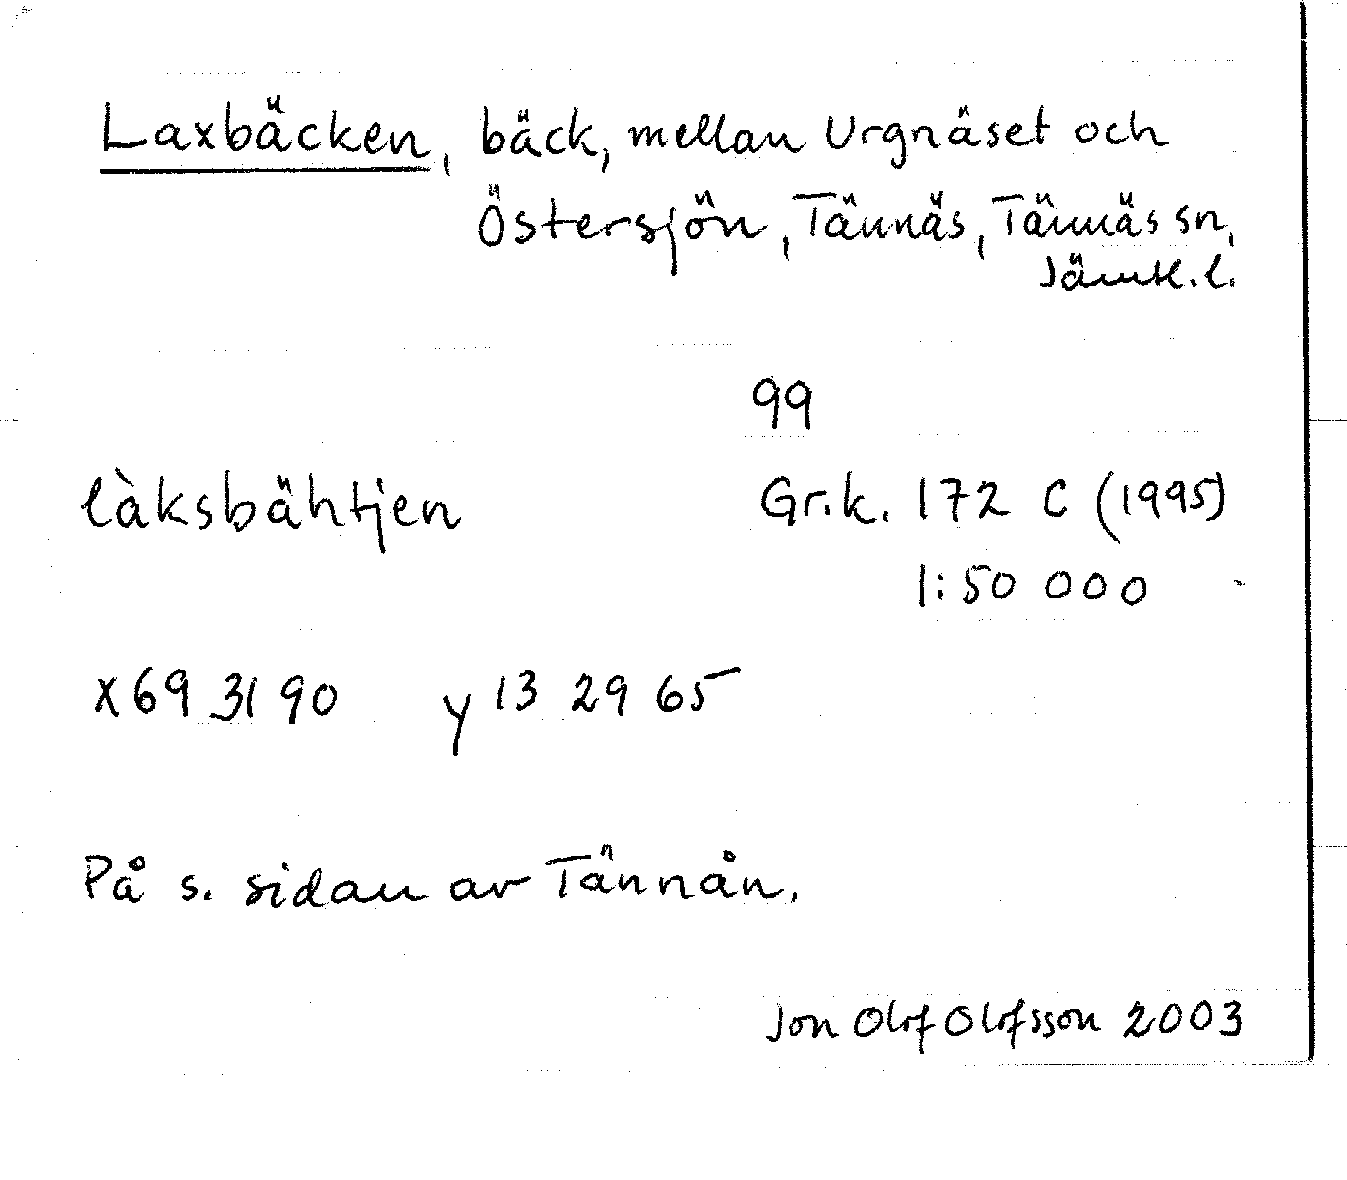 Laxbäcken, bäck, mellan Urgnäset och
Östersjön, Tännäs, Tännäs sn,
Jämtl. l.
99
làksbähtjen Gr.k. 172 C (1995)
1:50 000
x 69 31 90 y 13 29 65
På s. sidan av Tännån.
Jon Olof Olofsson 2003